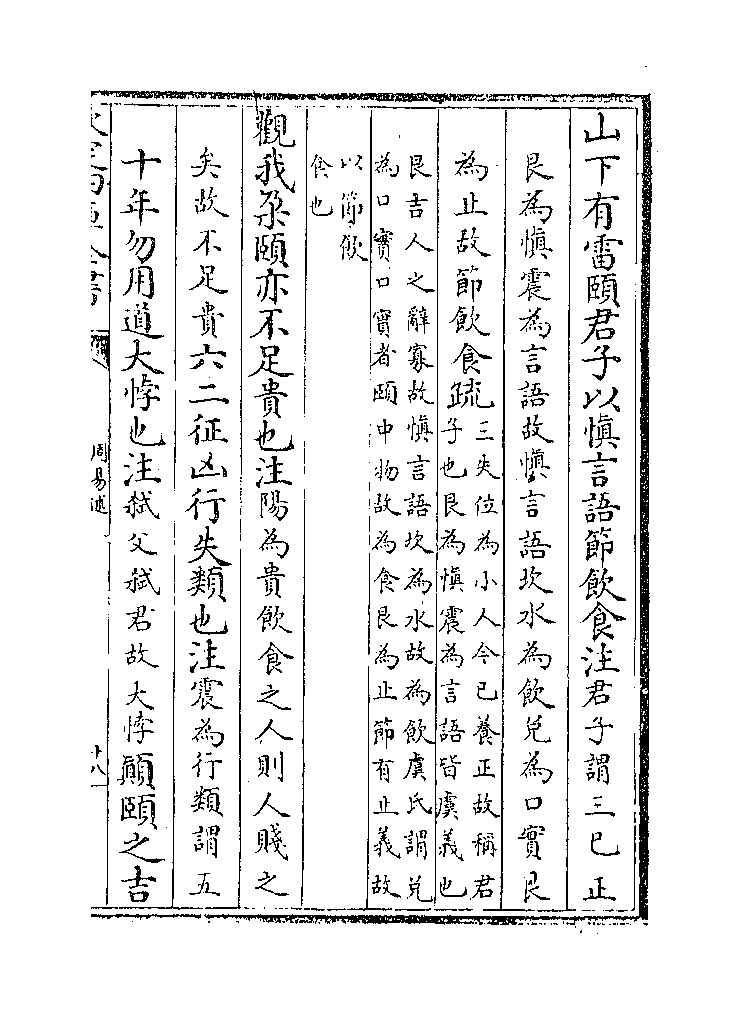 山下有雷頤君子以慎言語節飲食注君子謂三已正
艮為慎震為言語故慎言語坎水為飲兌為口實艮
為止故節飲食疏三失位為小人今已養正故稱君
子也艮為慎震為言語皆虞義也
艮吉人之辭寡故慎言語坎為水故為飲虞氏謂兌
為口實口實者頤中物故為食艮為止節有止義故
以節飲
食也
觀我朶頤亦不足貴也注陽為貴飲食之人則人賤之
矣故不足貴六二征凶行失類也注震為行類謂五
十年勿用道大悖也注弑父弑君故大悖顛頤之吉
欽定四庫全書
周易述
十八